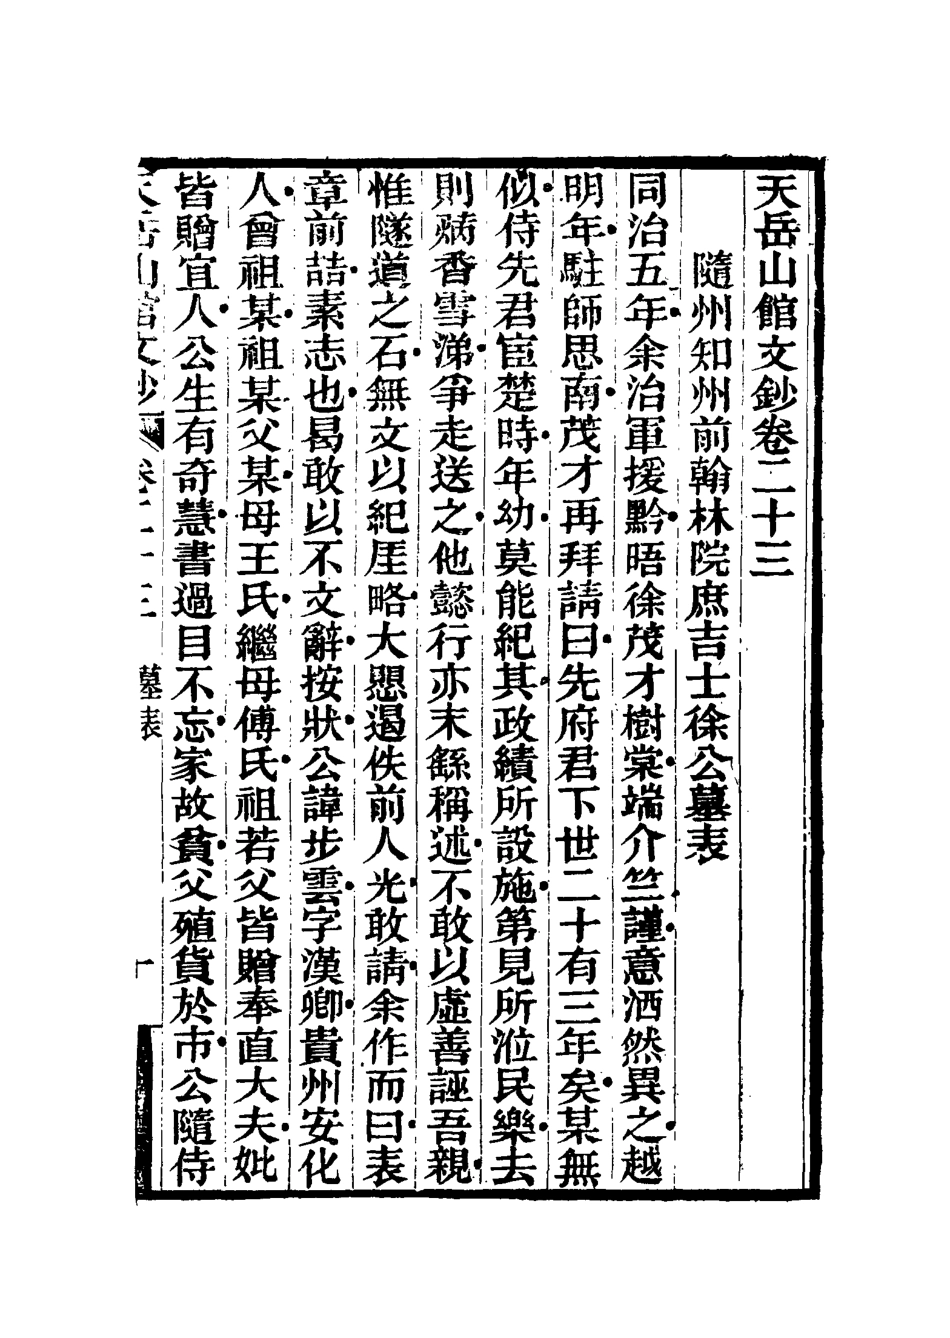 天岳山館文鈔卷二十三
隨州知州前翰林院庶吉士徐公墓表
同治五年余治軍援黔晤徐茂才樹棠端介竺謹意洒然異之越
明年駐師思南茂才再拜請曰先府君下世二十有三年矣某無
似侍先君宦楚時年幼莫能紀其政績所設施第見所涖民樂去
則爇香雪涕爭走送之他懿行亦末繇稱述不敢以虛善誣吾親
惟隧道之石無文以紀厓略大懼遏佚前人光敢請余作而曰表
章前喆素志也曷敢以不文辭按狀公諱步雲字漢卿貴州安化
人曾祖某祖某父某母王氏繼母傅氏祖若父皆贈奉直大夫妣
皆贈宜人公生有奇慧書過目不忘家故貧父殖貨於市公隨侍
天岳山館文鈔 卷二十三 墓表 一